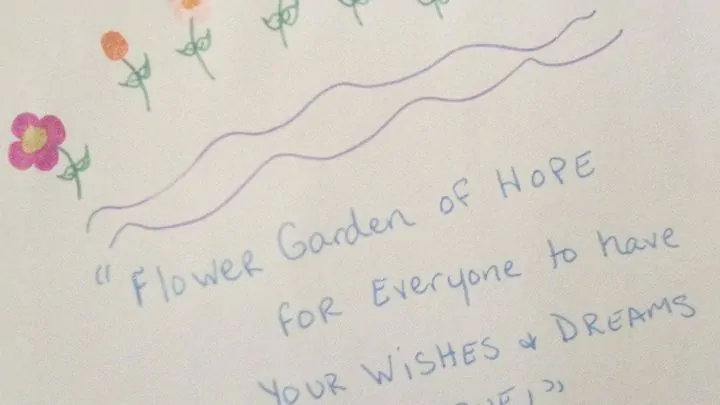 "Flower Garden of HOPE
FOR Everyone to have
YOUR WiSHES & DREAMS